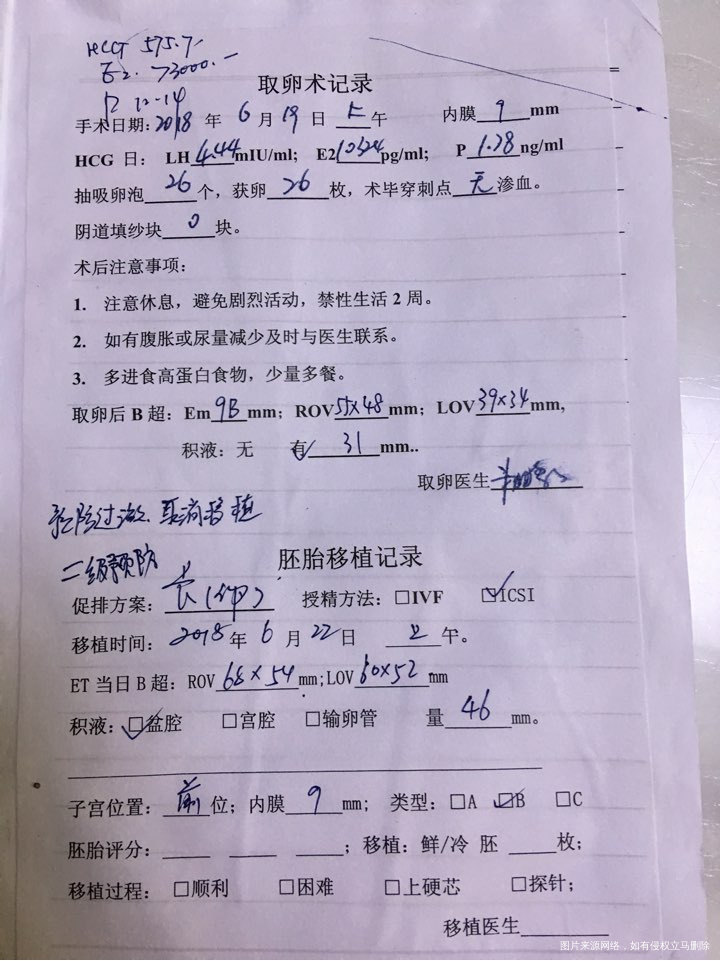 HCG 575.7
E2. 73000.
P 12-14
取卵术记录
手术日期：2018 年 6 月 19 日 上午 内膜 9 mm
HCG 日： LH 4.44 mIU/ml; E2 10324 pg/ml; P 1.28 ng/ml
抽吸卵泡 26 个，获卵 26 枚，术毕穿刺点 无 渗血。
阴道填纱块 0 块。
术后注意事项：
1. 注意休息，避免剧烈活动，禁性生活 2 周。
2. 如有腹胀或尿量减少及时与医生联系。
3. 多进食高蛋白食物，少量多餐。
取卵后 B 超：Em 9B mm；ROV 55×48 mm；LOV 39×34 mm,
积液：无 有✓ 31 mm..
取卵医生
取消移植
二级预防
胚胎移植记录
促排方案： 长 授精方法：□IVF ☑ICSI
移植时间：2018 年 6 月 22 日 上 午。
ET 当日 B 超：ROV 68×54 mm;LOV 60×52 mm
积液：☑盆腔 □宫腔 □输卵管 量 46 mm。
子宫位置： 前 位；内膜 9 mm; 类型：□A ☑B □C
胚胎评分：____ ____ ____；移植：鲜/冷 胚 ____枚；
移植过程： □顺利 □困难 □上硬芯 □探针；
移植医生
图片来源网络，如有侵权立马删除